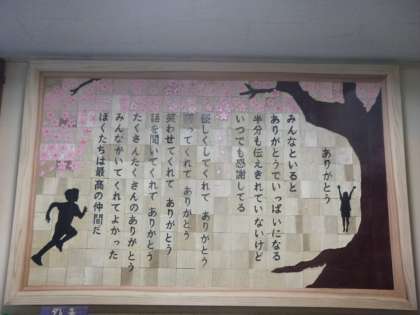 ありがとう
みんなといると
ありがとうでいっぱいになる
半分も伝えきれていないけど
いつでも感謝してる
優しくしてくれて ありがとう
怒ってくれて ありがとう
笑わせてくれて ありがとう
話を聞いてくれて ありがとう
たくさんたくさんのありがとう
みんながいてくれてよかった
ぼくたちは最高の仲間だ